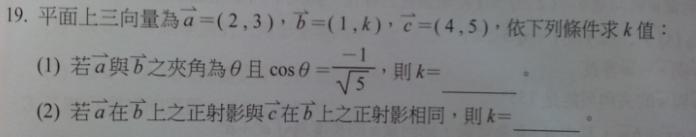 19. 平面上三向量為 $\vec{a}$=(2,3),$\vec{b}$=(1,k),$\vec{c}$=(4,5),依下列條件求 k 值:
(1) 若 $\vec{a}$ 與 $\vec{b}$ 之夾角為 θ 且 cos θ = $\frac{-1}{\sqrt{5}}$,則 k=______。
(2) 若 $\vec{a}$ 在 $\vec{b}$ 上之正射影與 $\vec{c}$ 在 $\vec{b}$ 上之正射影相同,則 k=______。